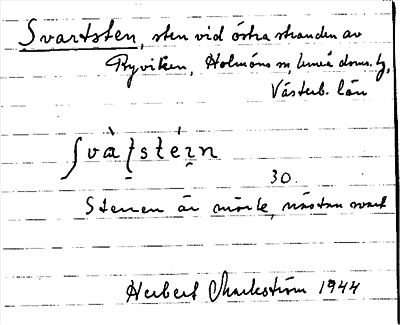 Svartsten, sten vid östra stranden av
Ryviken, Holmöns sn, Umeå doms. tg,
Västerb. län
30.
Stenen är mörk, nästan svart
Herbert Markström 1944